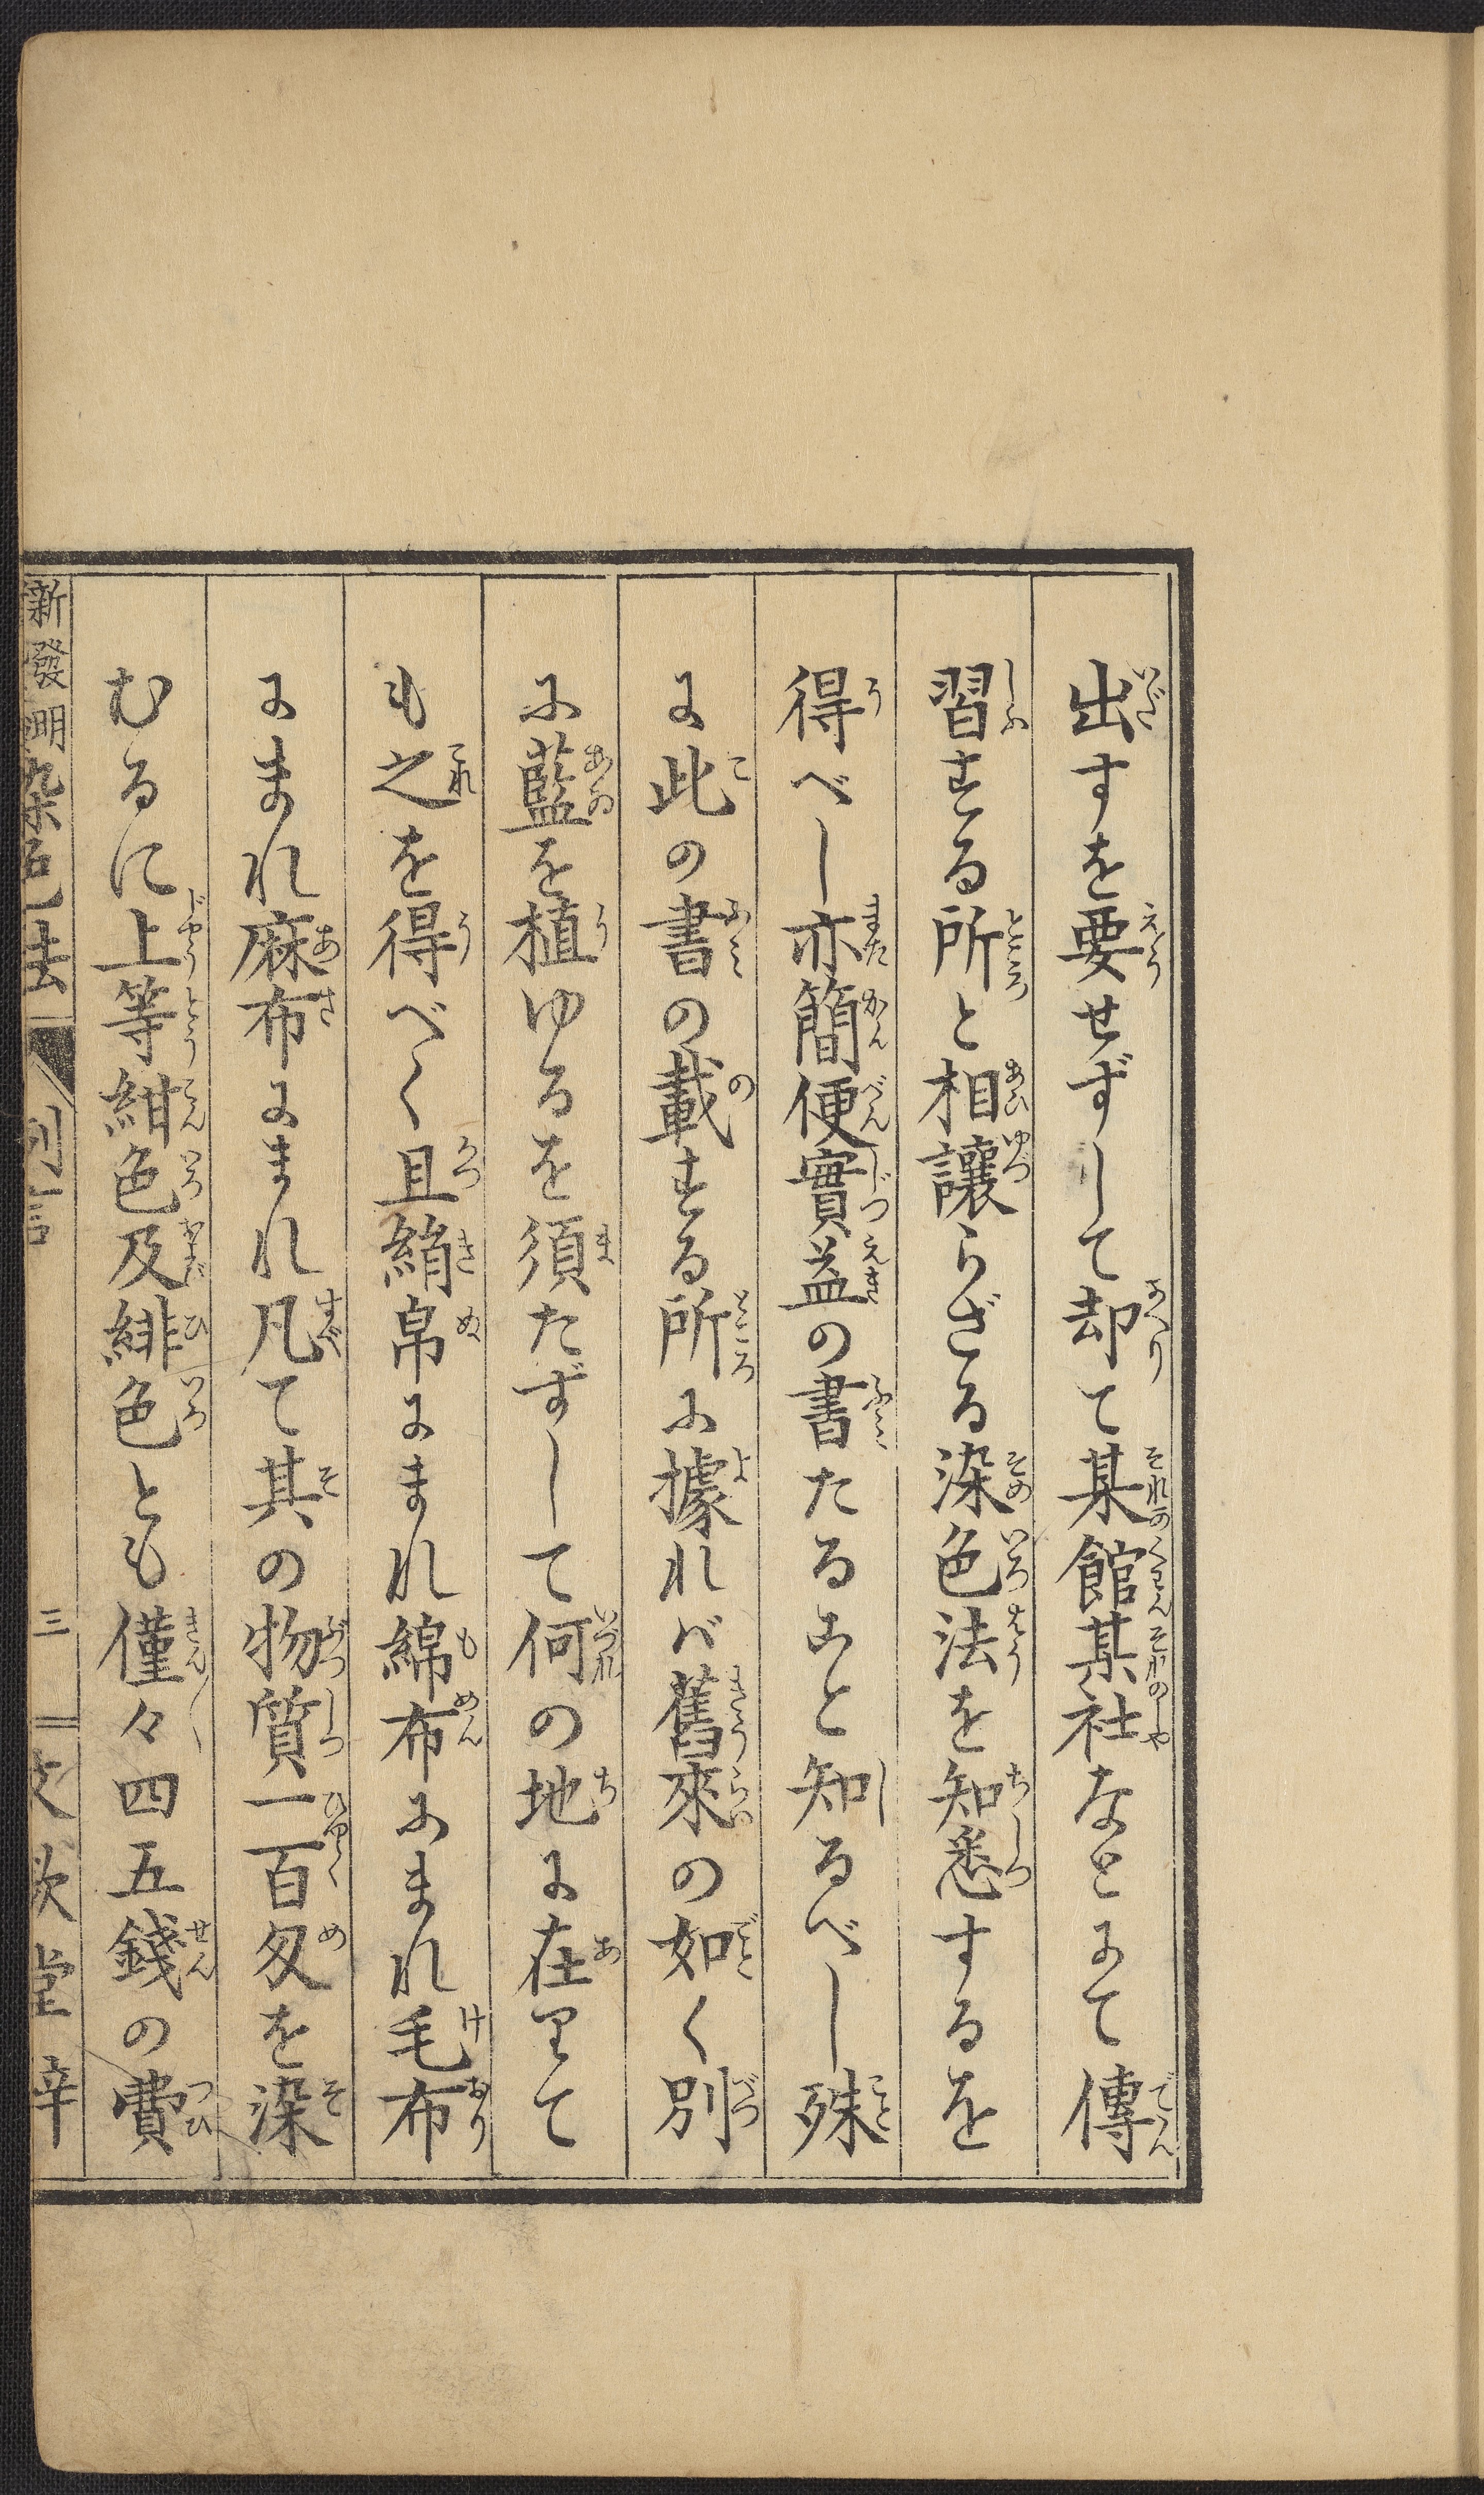 出すを要せずして却て某館某社なとにて傳
習する所と相讓らざる染色法を知悉するを
得べし亦簡便實益の書たること知るべし殊
に此の書の載する所に據れバ舊來の如く別
に藍を植ゆるを須たずして何の地に在りて
も之を得べく且絹帛にまれ綿布にまれ毛布
にまれ麻布にまれ凡て其の物質一百匁を染
むるに上等紺色及緋色とも僅々四五錢の費
新發明染色法
例言
三